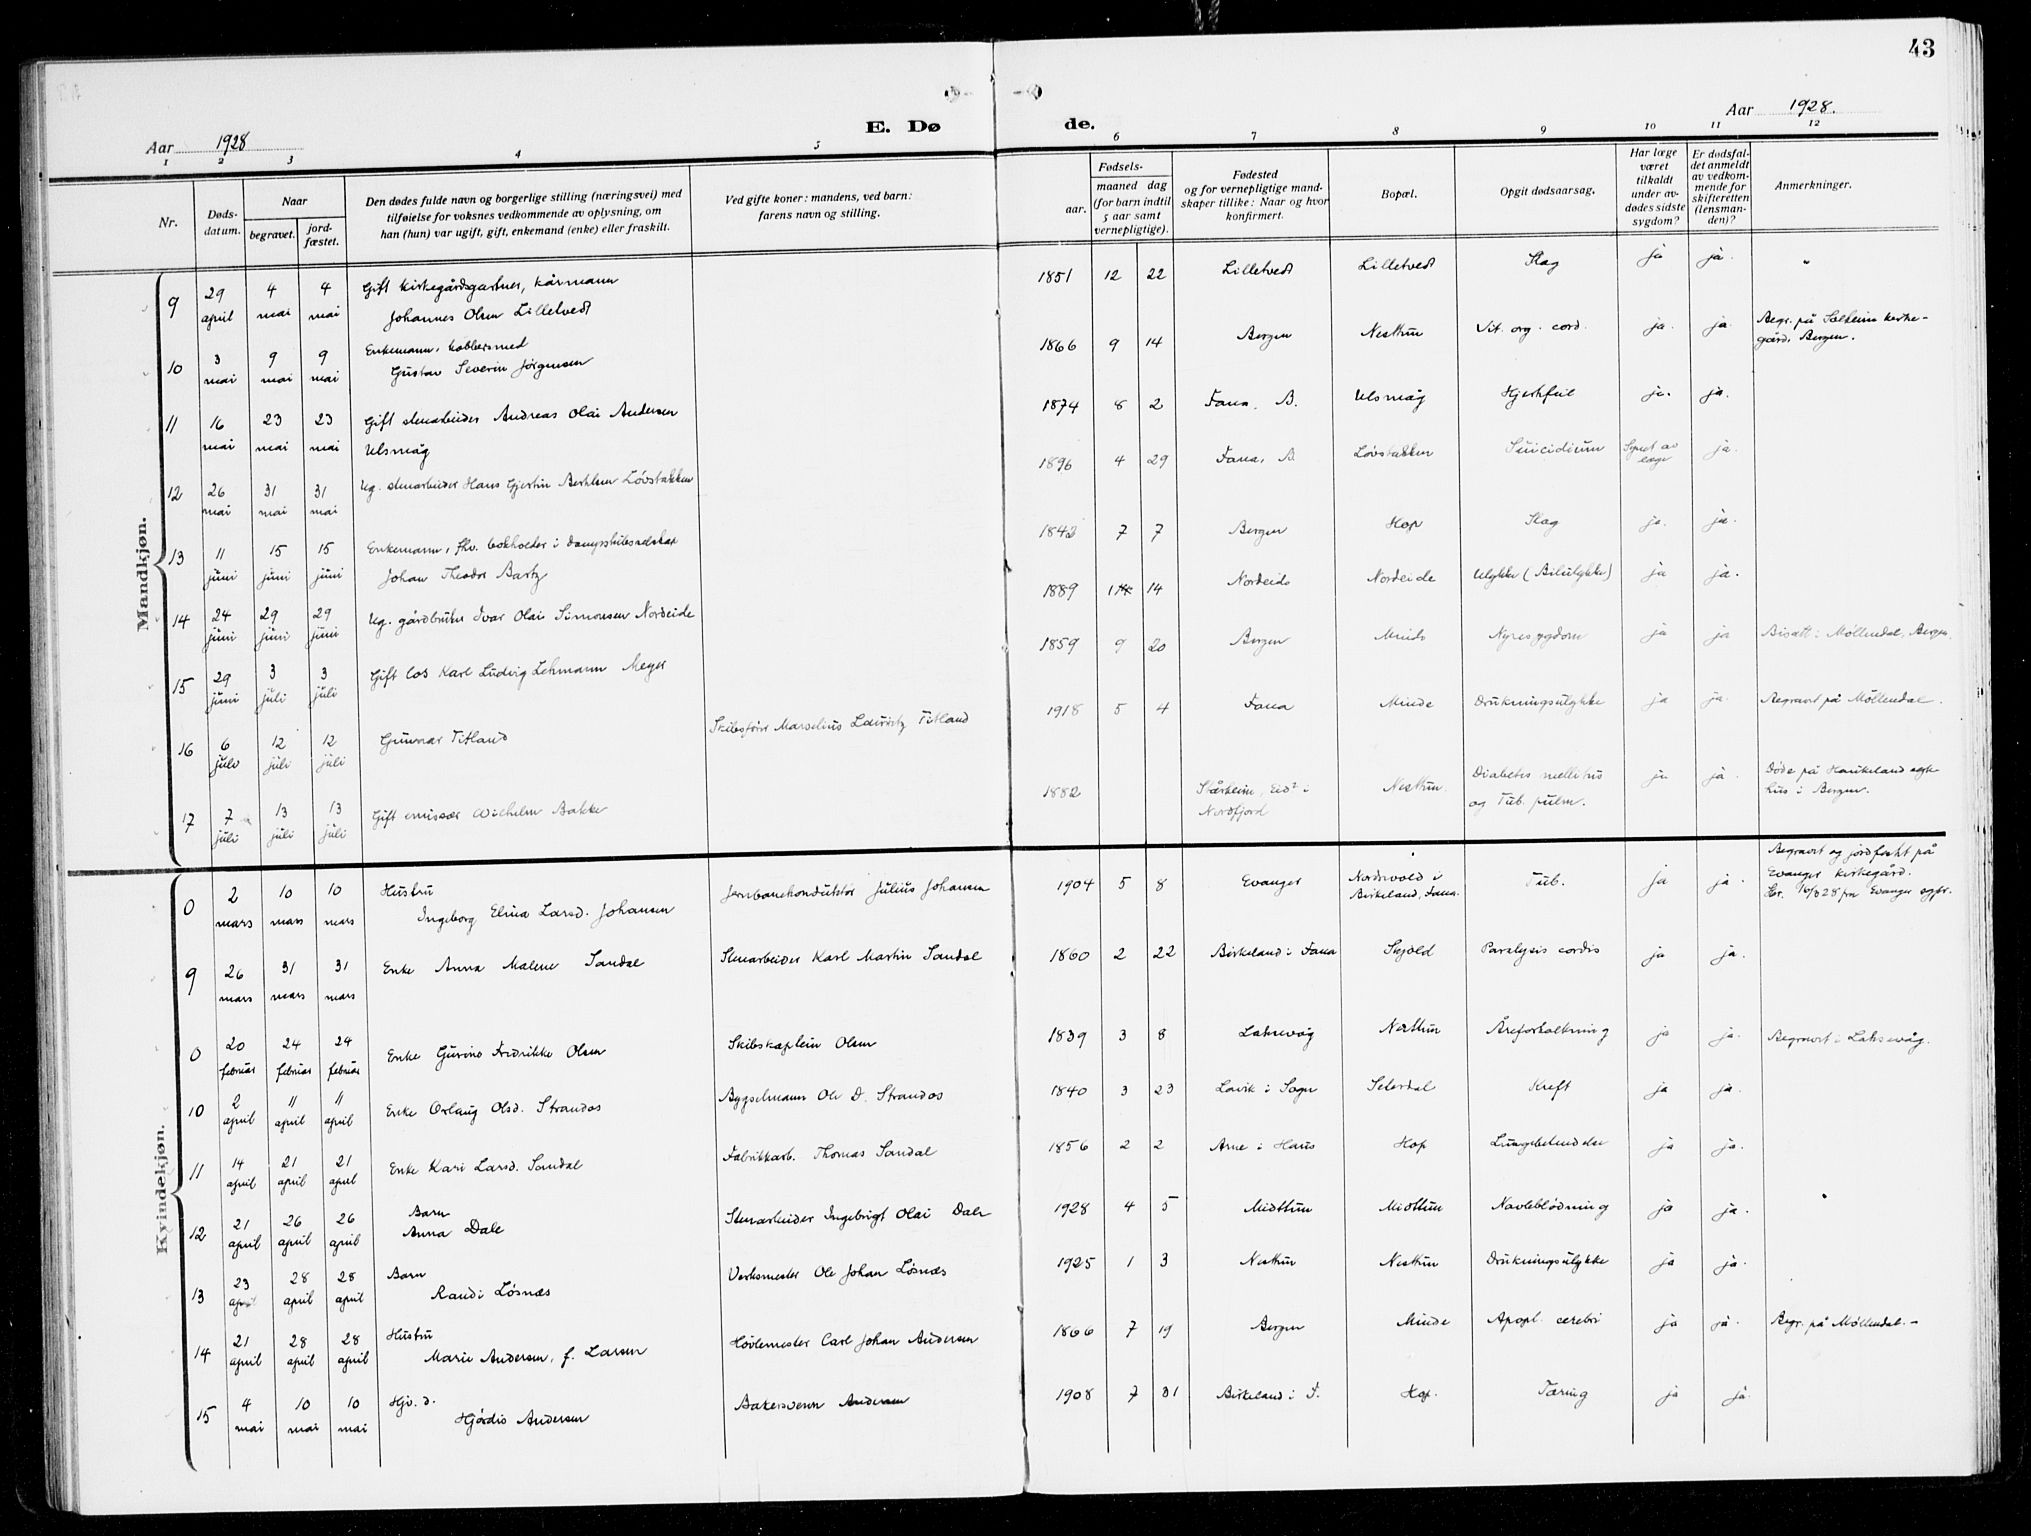 43
E. Døde.
Aar 1928
Aar 1928.
1 2 3 4 5 6 7 8 9 10 11 12
Nr.
Døds-datum.
Naar
begravet.
jord-fæstet.
Den dødes fulde navn og borgerlige stilling (næringsvei) med
tilføielse for voksnes vedkommende av oplysning, om
han (hun) var ugift, gift, enkemand (enke) eller fraskilt.
Ved gifte koner: mandens, ved barn:
farens navn og stilling.
Fødsels-
aar.
maaned dag
(for barn indtil
5 aar samt
vernepligtige).
Fødested
og for vernepligtige mand-
skaper tillike: Naar og hvor
konfirmert.
Bopæl.
Opgit dødsaarsag.
Har læge
været
tilkaldt
under av-
dødes sidste
sygdom?
Er dødsfal-
det anmeldt
av vedkom-
mende for
skifteretten
(lensman-
den)?
Anmerkninger.
Mandkjøn.
9 29 april 4 mai 4 mai Gift kirkegårdsgartner, kårmann
Johannes Olsen Lilletvedt 1851 12 22 Lilletvedt Lilletvedt Slag ja ja. "
10 3 mai 9 mai 9 mai Enkemann, kobbersmed
Gustav Severin Jørgensen 1866 9 14 Bergen Nesttun Vit. org. cord. ja. ja. Begr. på Solheim kirke-
gård, Bergen.
11 16 mai 23 mai 23 mai Gift stenarbeider Andreas Olai Andersen
Ulsmåg 1874 8 2 Fana, B. Ulsmåg Hjertefeil ja. ja.
12 26 mai 31 mai 31 mai Ug. stenarbeider Hans Gjertin Løvstakken 1896 4 29 Fana, B. Løvstakken Suicidium Synet av
læge ja.
13 11 juni 15 juni 15 juni Enkemann, fhv. bokholder i dampskibsselskap
Johan Theodor Bartz 1842 7 7 Bergen Hop Slag ja. ja.
14 24 juni 29 juni 29 juni Ug. gårdbruker Ivar Olai Simonsen Nordeide 1889 14 Nordeide Nordeide Ulykke (Bilulykke) ja ja.
15 29 juni 3 juli 3 juli Gift los Karl Ludvig Lehmann Meyer 1859 9 20 Bergen Minde Nyresygdom ja ja Bisatt i Møllendal, Bergen.
16 6 juli 12 juli 12 juli Gunnar Titland Skibsfører Marselius Lauritz Titland 1918 5 4 Fana Minde Drukningsulykke ja ja. Begravet på Møllendal.
17 7 juli 13 juli 13 juli Gift emissær Wilhelm Bakke 1882 Stårheim, Eid i
Nordfjord Nesttun. Diabetes mellitus
og Tub. pulm. ja ja. Døde på Haukeland syke-
hus i Bergen.
Kvindekjøn.
0 2 mars 10 mars 10 mars Hustru
Ingeborg Elina Larsd. Johansen Jernbanekonduktør Julius Johansen 1904 5 8 Evanger Nordnvold i
Birkeland, Fana. Tub. ja ja. Begravet og jordfestet på
Evanger kirkegård.
Evanger
9 26 mars 31 mars 31 mars Enke Anna Malene Sandal Stenarbeider Karl Martin Sandal 1860 2 22 Birkeland i Fana Skjold Paralysis cordis ja ja.
0 20 februar 24 februar 24 februar Enke Gurine Fredrikke Olsen Skibskaptein Olsen 1839 3 8 Laksevåg Nesttun Åreforkalkning ja ja. Begravet i Laksevåg.
10 2 april 11 april 11 april Enke Orlaug Olsd. Strandos Bygselmann Ole D. Strandos 1840 3 23 Lavik i Sogn Seterdal Kreft ja ja.
11 14 april 21 april 21 april Enke Kari Larsd. Sandal Fabrikkarb. Thomas Sandal 1856 2 2 Arne i Haus Hop Lungebetendelse ja ja.
12 21 april 26 april 26 april Barn
Anna Dale Stenarbeider Ingebrigt Olai Dale 1928 4 5 Midttun Midttun Navleblødning ja ja.
13 23 april 28 april 28 april Barn
Randi Løsnæs Verksmester Ole Johan Løsnæs 1925 1 3 Nesttun Nesttun Drukningsulykke ja ja.
14 21 april 28 april 28 april Hustru
Marie Andersen, f. Larsen Høvlemester Carl Johan Andersen 1866 7 19 Bergen Minde Apopl. cerebri ja ja. Begr. på Møllendal. -
15 4 mai 10 mai 10 mai Hjv. d.
Hjørdis Andersen Bakersvenn Andersen 1908 7 31 Birkeland i F. Hop. Tæring ja ja